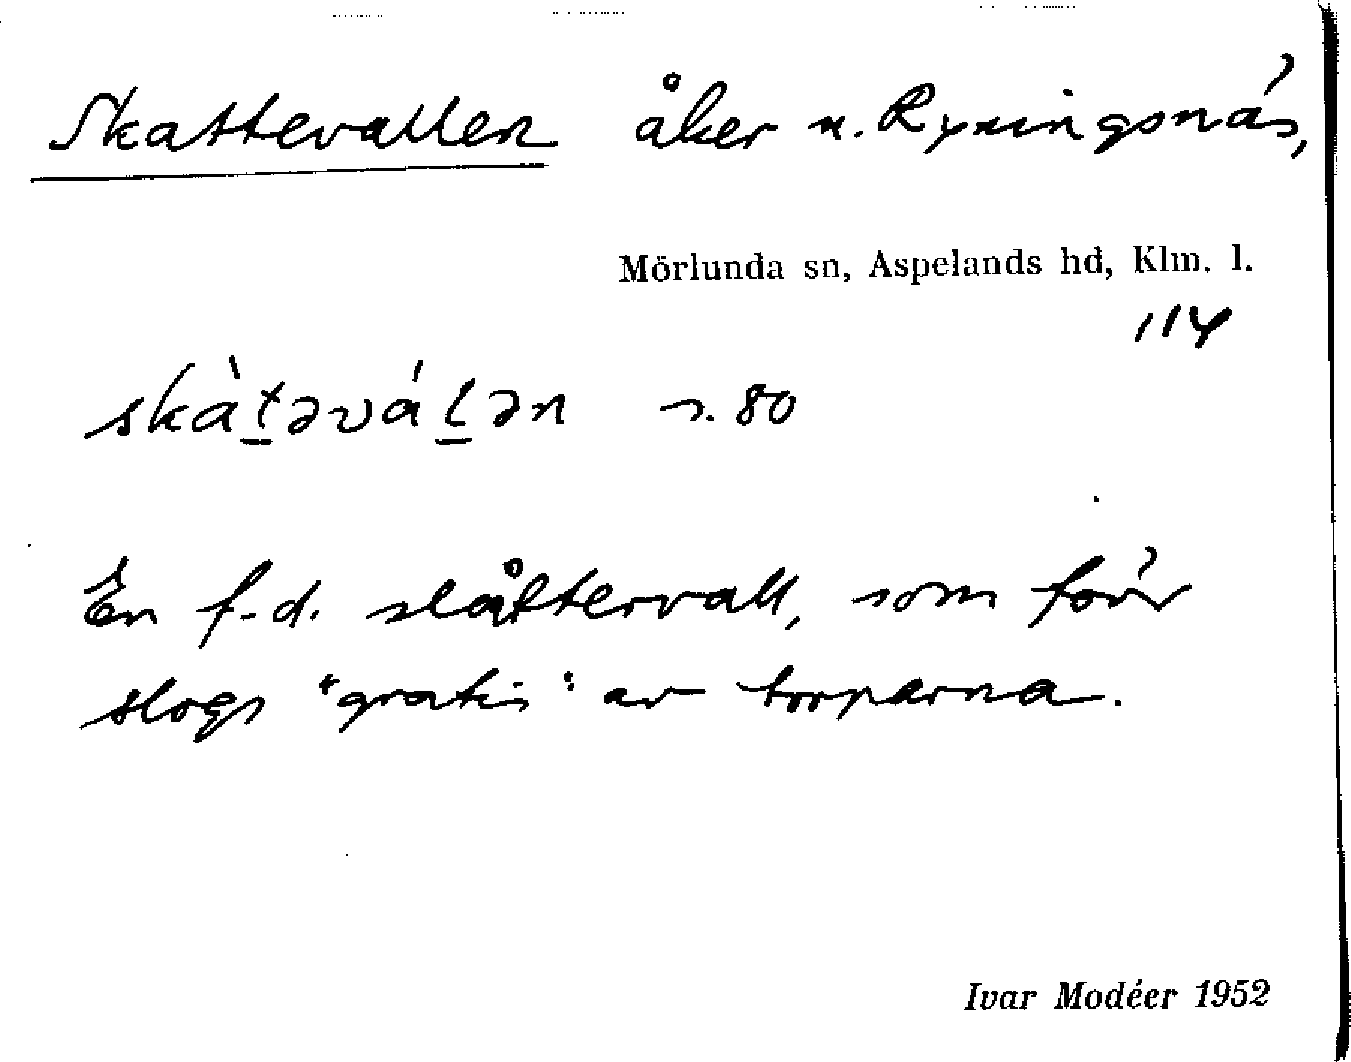 Skattevallen åker u. Ryningsnäs,
Mörlunda sn, Aspelands hd, Klm. l.
114
skàt̲əvál̲ən s. 80
En f.d. slåttervall, som förr
slogs "gratis" av torparna.
Ivar Modéer 1952